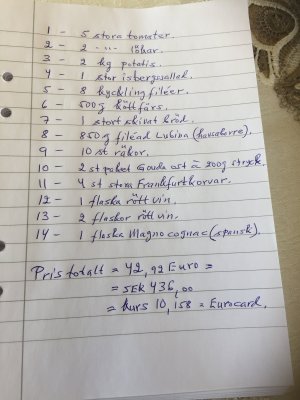 1 - 5 stora tomater.
2 - 2 -"- lökar.
3 - 2 kg potatis.
4 - 1 stor isbergssallad.
5 - 8 kycklingfiléer.
6 - 600g köttfärs.
7 - 1 stort skivat bröd.
8 - 860g filéad Lubina (havsaborre).
9 - 10 st räkor.
10 - 2 st paket Gouda ost à 200g styck.
11 - 4 st stora Frankfurtkorvar.
12 - 1 flaska rött vin.
13 - 2 flaskor rött vin.
14 - 1 flaska Magno cognac (spansk).
Pris totalt = 42,92 Euro =
= SEK 436,00
= kurs 10,158 = Eurocard.